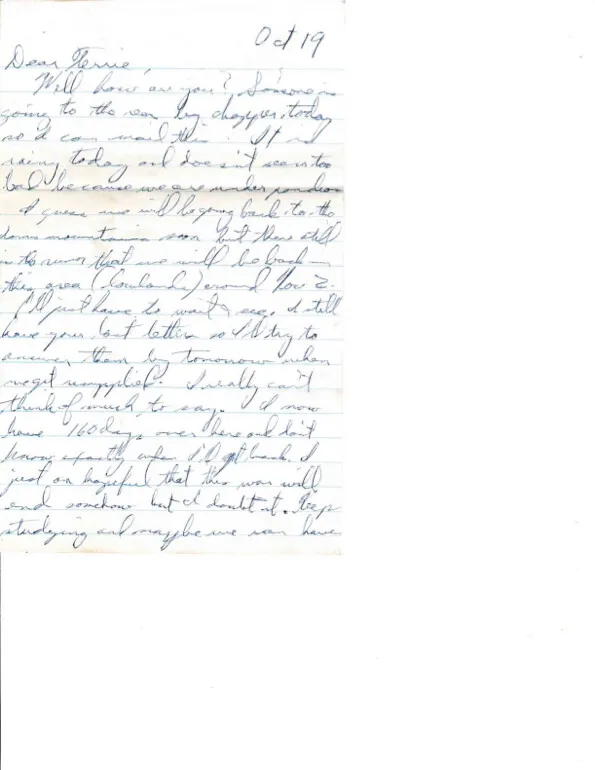 Oct 19
Dear Terrie,
Well how are you? Someone is
going to the rear by chopper today
so I can mail this. It is
rainy today and doesn't seem too
bad because we are under ponchos
I guess we will be going back to the
damn mountains soon but there still
is the rumor that we will be back in
this area (lowlands) around Nov 2.
I'll just have to wait & see. I still
have your last letters so I'll try to
answer them by tomorrow when
we get resupplied. I really can't
think of much to say. I now
have 160 days over here and don't
know exactly when I'll get back. I
just am hopeful that this war will
end somehow but I doubt it. Keep
studying and maybe we can have